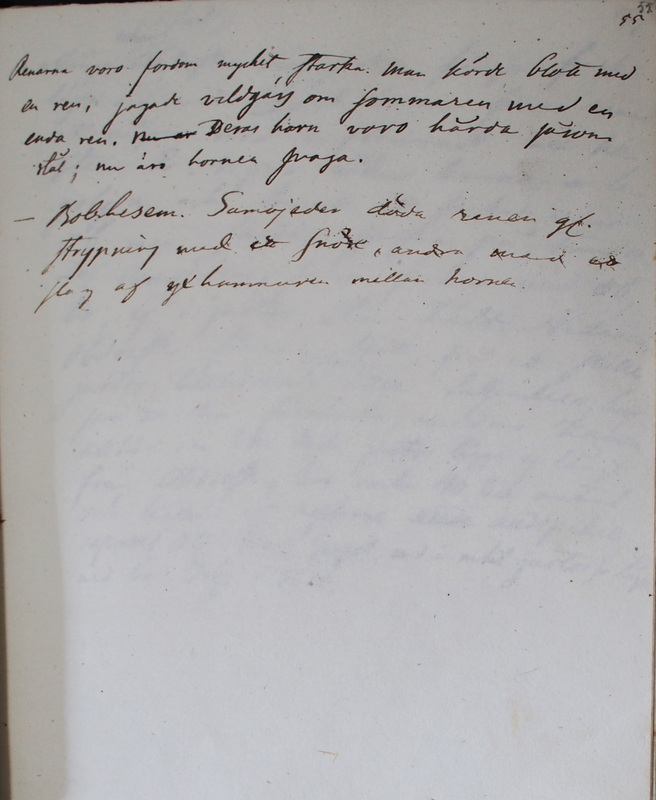 55
Renarna voro fordom mycket starka. man körde blott med
en ren, jagade vildgäss om sommaren med en
enda ren. Nu är Deras horn voro hårda såsom
stål; nu äro hornen svaga.
— Samojeder döda renen gt.
strypning med ett snöre, andra med ett
slag af yxhammaren mellan hornen.